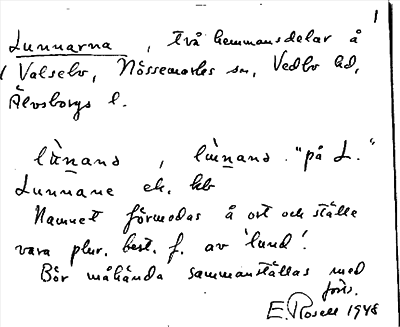 1
Lunnarna, två hemmansdelar å
Valselv, Nössemarks sn, Vedbo hd,
Älvsborgs l.
lùnanə, lùnanə. "på L."
Lunnane ek. kb
Namnet förmodas å ort och ställe
vara plur. best. f. av 'lund'.
Bör måhända sammanställas med
förs.
E. Rosell 1948